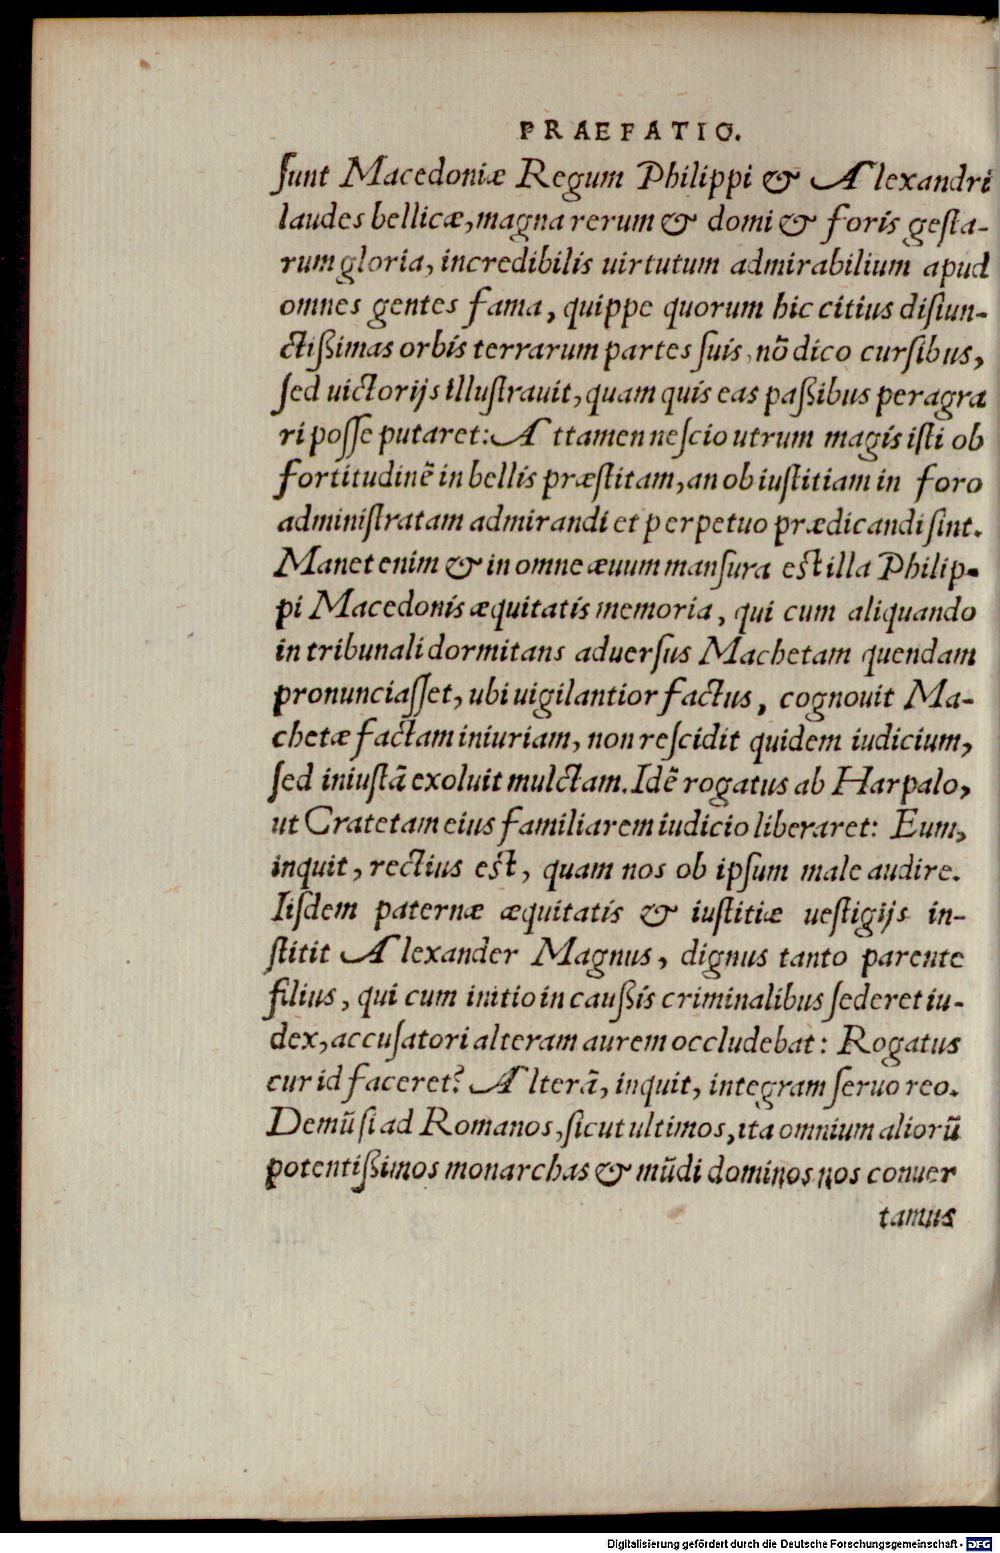 PRAEFATIO.
ſunt Macedoniæ Regum Philippi & Alexandri
laudes bellicæ, magna rerum & domi & foris geſta-
rum gloria, incredibilis uirtutum admirabilium apud
omnes gentes fama, quippe quorum hic citius diſiun-
ctißimas orbis terrarum partes ſuis, nõ dico curſibus,
ſed uictorijs illuſtrauit, quam quis eas paßibus peragra
ri poſſe putaret: Attamen neſcio utrum magis iſti ob
fortitudinẽ in bellis præſtitam, an ob iuſtitiam in foro
adminiſtratam admirandi et perpetuo prædicandi ſint.
Manet enim & in omne æuum manſura eſt illa Philip-
pi Macedonis æquitatis memoria, qui cum aliquando
in tribunali dormitans aduerſus Machetam quendam
pronunciaſſet, ubi uigilantior factus, cognouit Ma-
chetæ factam iniuriam, non reſcidit quidem iudicium,
ſed iniuſtã exoluit mulctam. Idẽ rogatus ab Harpalo,
ut Cratetam eius familiarem iudicio liberaret: Eum,
inquit, rectius eſt, quam nos ob ipſum male audire.
Iiſdem paternæ æquitatis & iuſtitiæ ueſtigijs in-
ſtitit Alexander Magnus, dignus tanto parente
filius, qui cum initio in caußis criminalibus ſederet iu-
dex, accuſatori alteram aurem occludebat: Rogatus
cur id faceret? Alterã, inquit, integram ſeruo reo.
Demũ ſi ad Romanos, ſicut ultimos, ita omnium aliorũ
potentißimos monarchas & mũdi dominos nos conuer
tamus
Digitalisierung gefördert durch die Deutsche Forschungsgemeinschaft - DFG